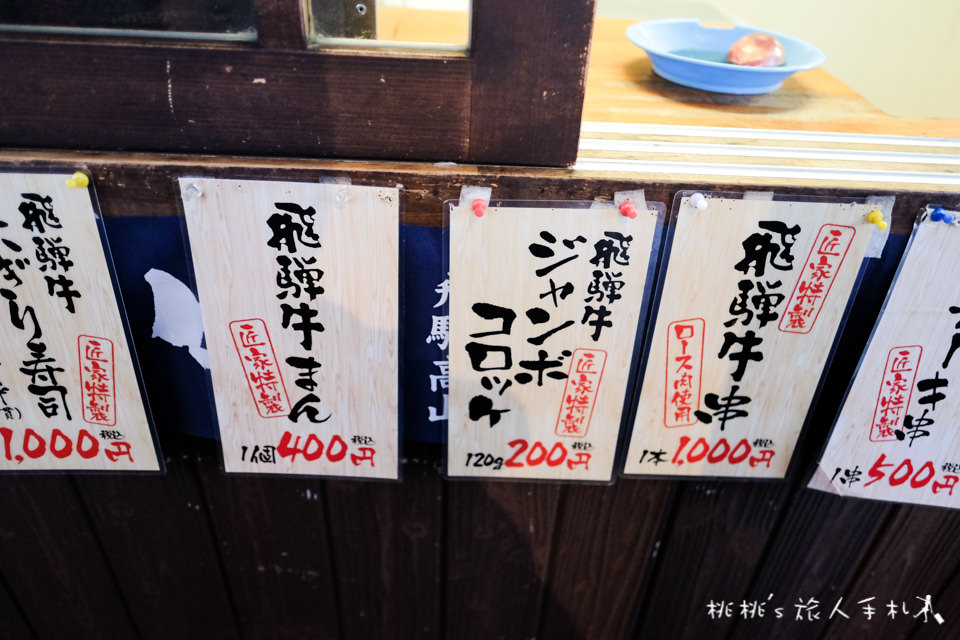 飛騨牛
にぎり寿司
匠家特製
1,000円
税込
飛騨牛まん
匠家特製
1個
400円
税込
飛騨牛
ジャンボ
コロッケ
匠家特製
120g
200円
税込
飛騨牛串
匠家特製
ロース肉使用
1本
1,000円
税込
キ串
匠家特製
1串
500円
税込
飛騨高山
桃桃's旅人手札